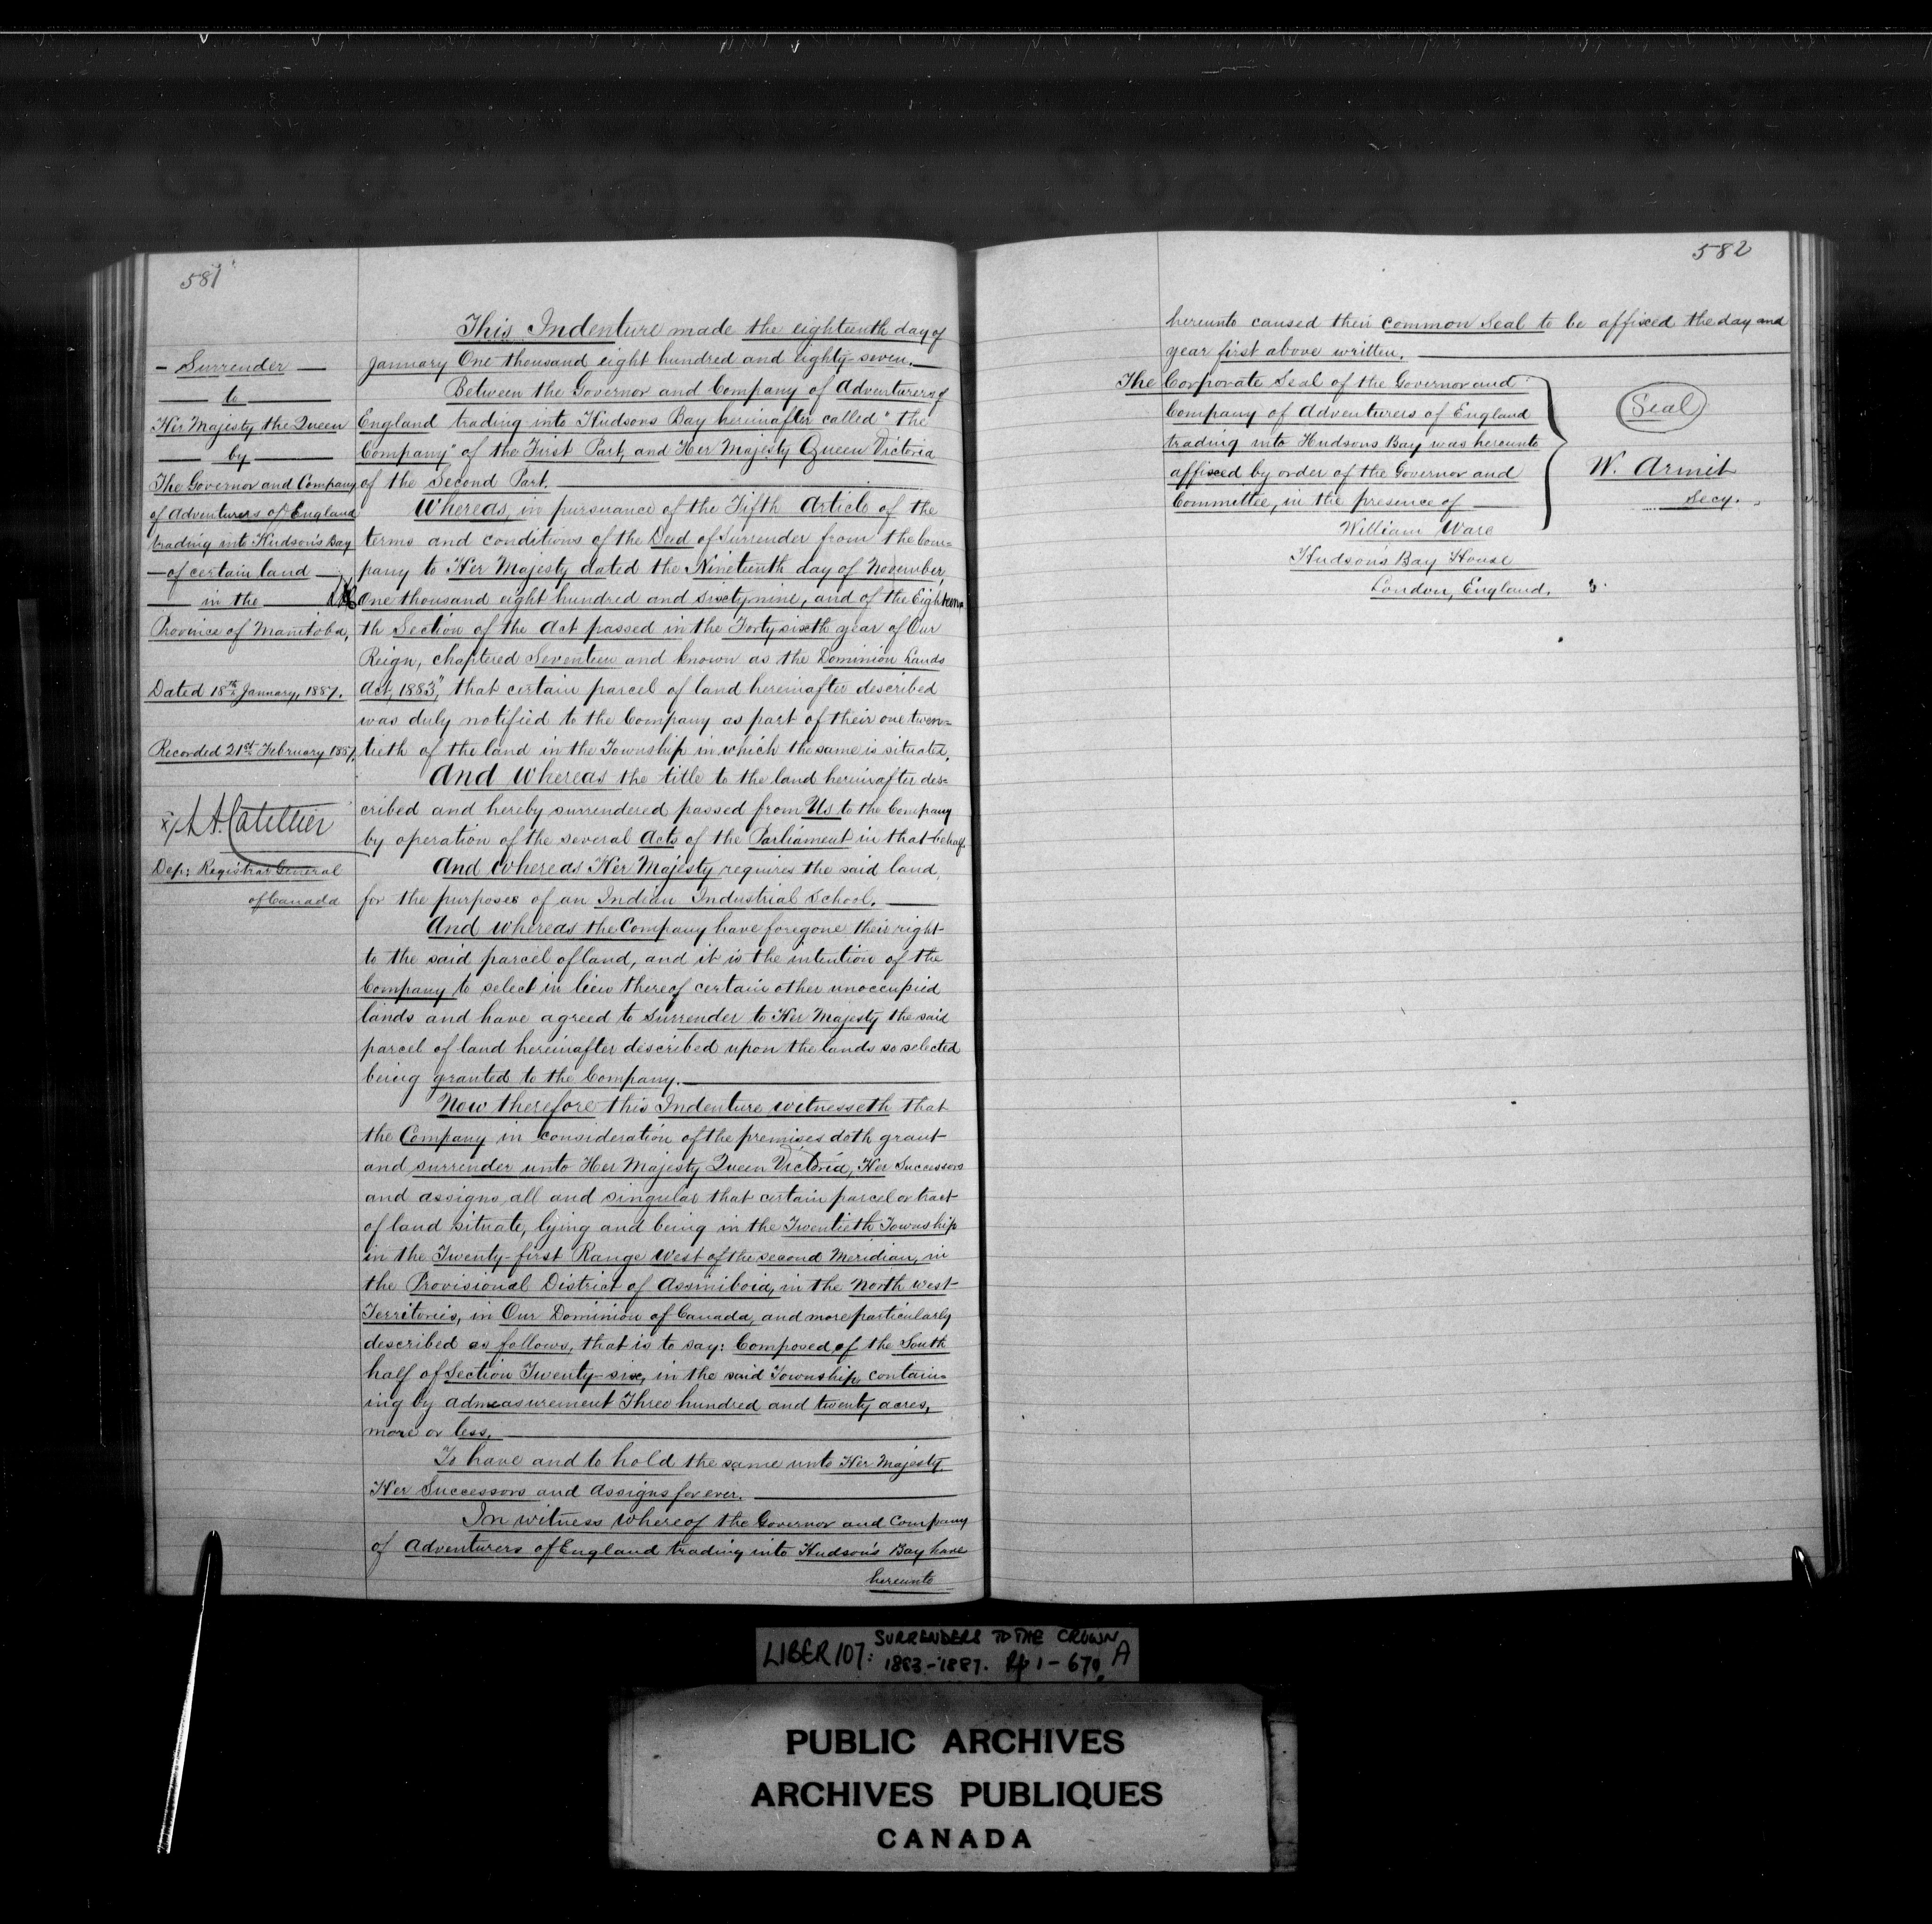 581
- Surrender -
to
Her Majesty the Queen
by
The Governor and Company
of Adventurers of England
trading into Hudson's Bay
- of certain land -
in the
Province of Manitoba,
Dated 18th January, 1887.
Recorded 21st February 1887,
Catellier
Dep: Registrar General
of Canada
This Indenture made the eighteenth day of
January One thousand eight hundred and eighty-seven.
Between the Governor and Company of Adventurers of
England trading into Hudsons Bay hereinafter called "the
Company" of the First Part, and Her Majesty Queen Victoria
of the Second Part.
Whereas, in pursuance of the Fifth Article of the
terms and conditions of the Deed of Surrender from the Com=
pany to Her Majesty dated the Nineteenth day of November,
One thousand eight hundred and sixty nine, and of the Eighteen=
th Section of the Act passed in the Forty sixth year of Our
Reign, chaptered Seventeen and known as the Dominion Lands
Act, 1883", that certain parcel of land hereinafter described
was duly notified to the Company as part of their one twen=
tieth of the land in the Township in which the same is situated,
And Whereas the title to the land hereinafter des=
cribed and hereby surrendered passed from Us to the Company
by operation of the several Acts of the Parliament in that behalf.
And whereas Her Majesty requires the said land,
for the purposes of an Indian Industrial School.
And whereas the Company have foregone their right
to the said parcel of land, and it is the intention of the
Company to select in lieu thereof certain other unoccupied
lands and have agreed to Surrender to Her Majesty the said
parcel of land hereinafter described upon the lands so selected
being granted to the Company.
Now therefore this Indenture witnesseth that
the Company in consideration of the premises doth grant
and surrender unto Her Majesty Queen Victoria, Her Successors
and assigns all and singular that certain parcel or tract
of land situate, lying and being in the Twentieth Township
in the Twenty-first Range West of the second Meridian, in
the Provisional District of Assiniboia, in the North West
Territories, in Our Dominion of Canada, and more particularly
described as follows, that is to say: Composed of the South
half of Section Twenty-six, in the said Township, contain=
ing by admeasurement Three hundred and twenty acres,
more or less.
To have and to hold the same unto Her Majesty,
Her Successors and Assigns for ever.
In witness whereof the Governor and Company
of Adventurers of England trading into Hudson's Bay have
hereunto
582
hereunto caused their common Seal to be affixed the day and
year first above written.
The Corporate Seal of the Governor and
Company of Adventurers of England
trading into Hudsons Bay was hereunto
affixed by order of the Governor and
Committee, in the presence of
William Ware
Hudson's Bay House
London, England.
Seal
W. Armit
Secy.
LIBER 107: SURRENDERS TO THE CROWN
1883-1887. pp 1-670 A
PUBLIC ARCHIVES
ARCHIVES PUBLIQUES
CANADA